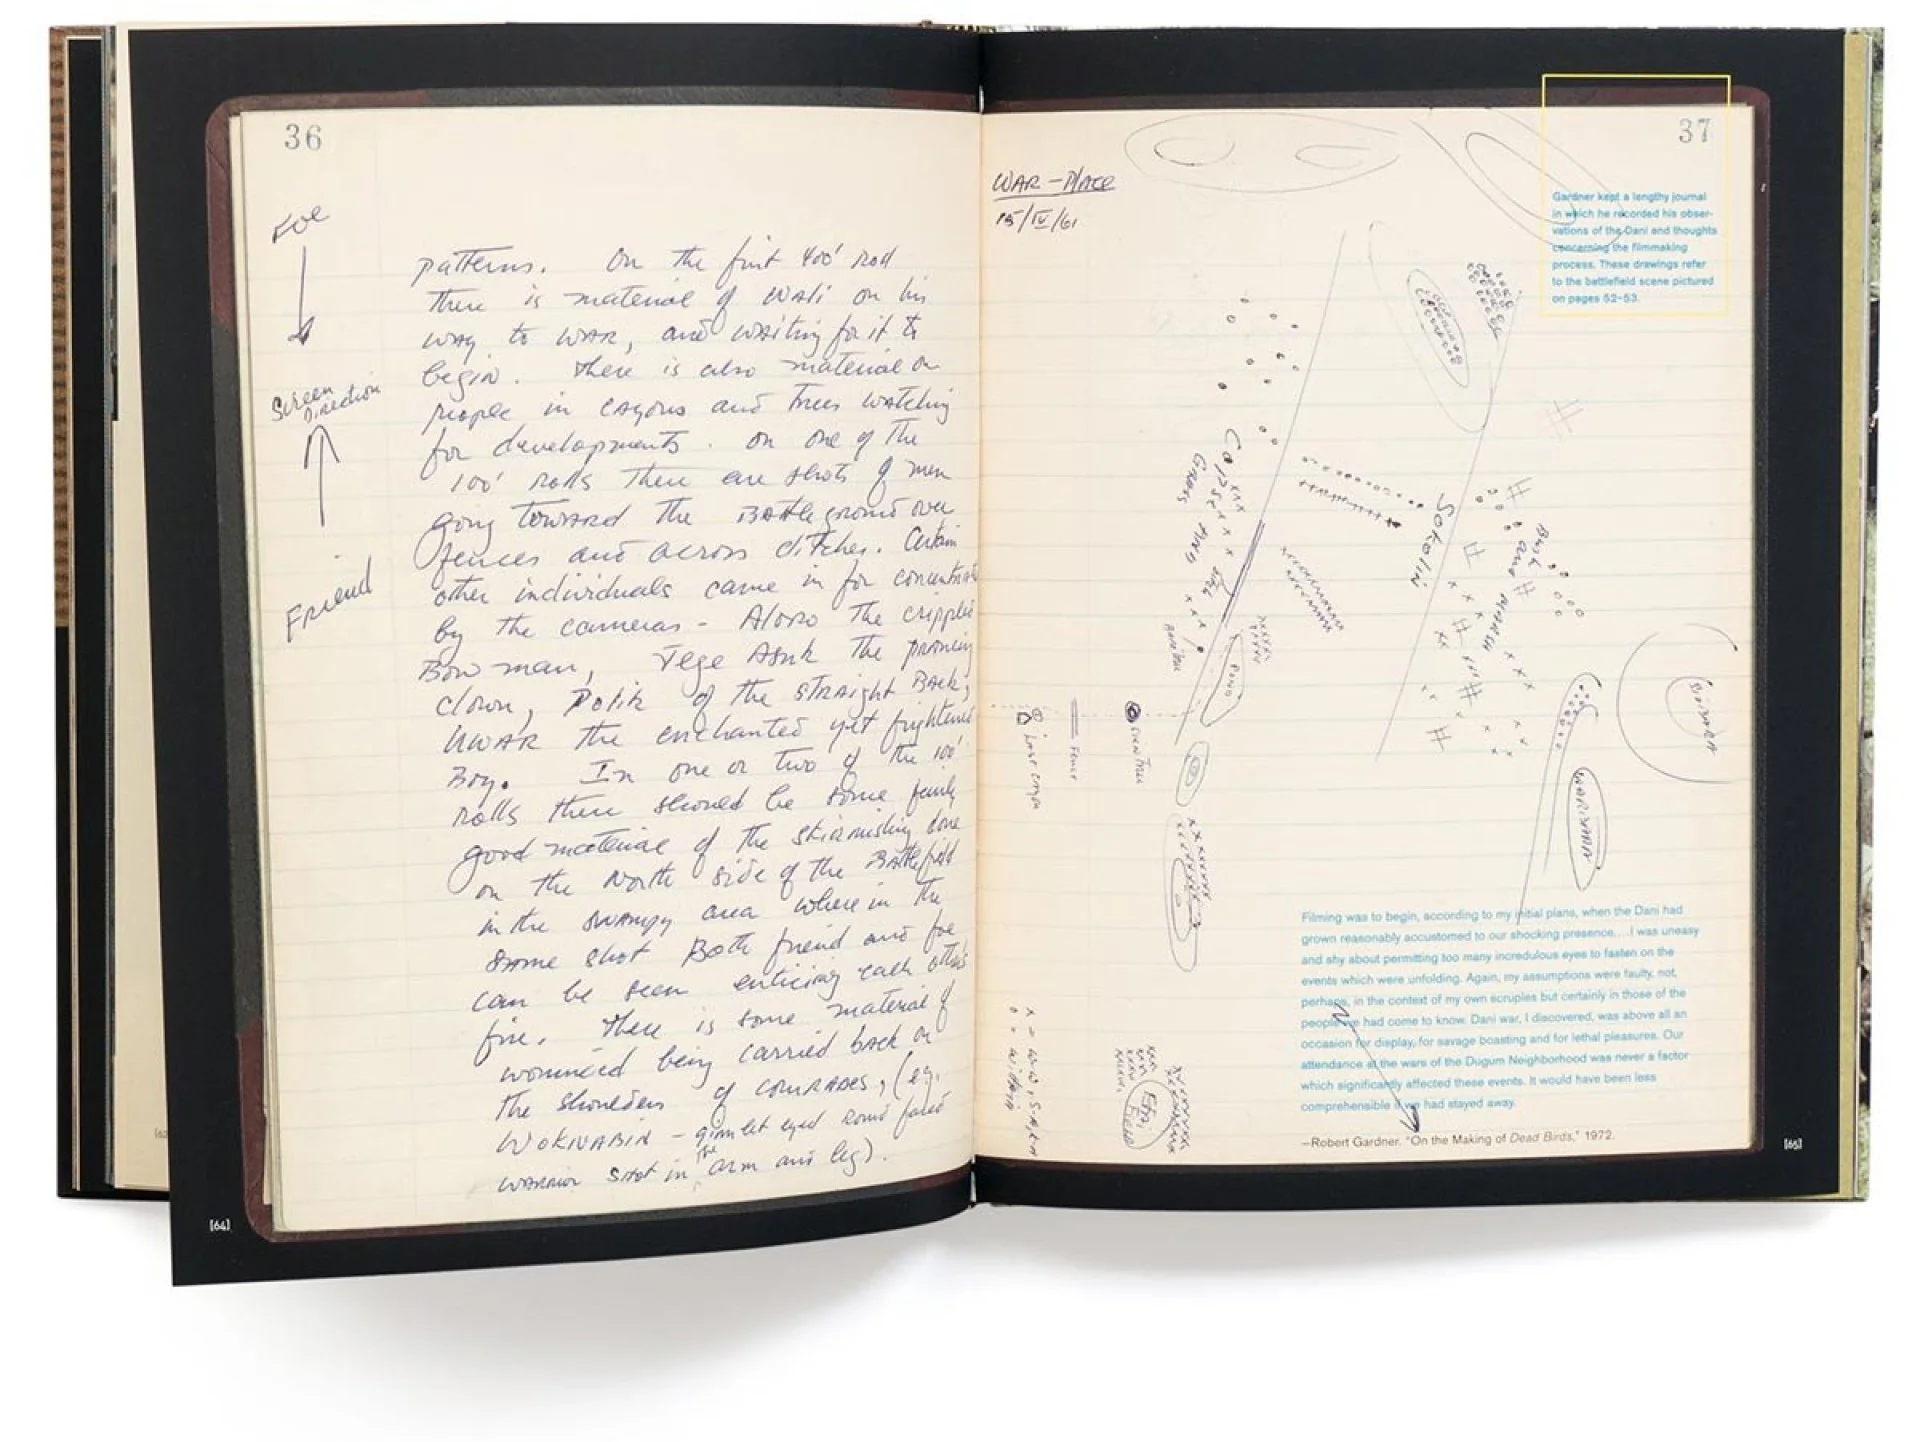 36
Foe
Screen
Direction
Friend
patterns. On the first 400' roll
there is material of Wali on his
way to WAR, and waiting for it to
begin. There is also material on
people in and trees watching
for developments. On one of the
100' rolls there are shots of men
going toward the Battleground over
fences and across ditches. Certain
other individuals came in for
by the cameras - the cripple
Bow man, Tege Asuk the
clown, Polik of the straight Back,
UWAR the enchanted yet frightened
Boy. In one or two of the 100'
rolls there should be some fairly
good material of the skirmishing done
on the North side of the Battlefield
in the swampy area where in the
same shot Both friend and foe
can be seen enticing each others
fire. There is some material of
wounded being carried back on
the shoulders of comrades, (eg.
WOKNABIN - gimlet eyed round faced
warrior shot in the arm and leg).
[64]
37
WAR-PLACE
15/IV/61
Gardner kept a lengthy journal
in which he recorded his obser-
vations of the Dani and thoughts
concerning the filmmaking
process. These drawings refer
to the battlefield scene pictured
on pages 52–53.
Grass AND
Sokolin
Bush and MARSH
POND
Fence
Filming was to begin, according to my initial plans, when the Dani had
grown reasonably accustomed to our shocking presence....I was uneasy
and shy about permitting too many incredulous eyes to fasten on the
events which were unfolding. Again, my assumptions were faulty, not,
perhaps, in the context of my own scruples but certainly in those of the
people we had come to know. Dani war, I discovered, was above all an
occasion for display, for savage boasting and for lethal pleasures. Our
attendance at the wars of the Dugum Neighborhood was never a factor
which significantly affected these events. It would have been less
comprehensible if we had stayed away.
N
—Robert Gardner. "On the Making of Dead Birds," 1972.
x = W-W, 
o = Wittaia
FIELD
[65]